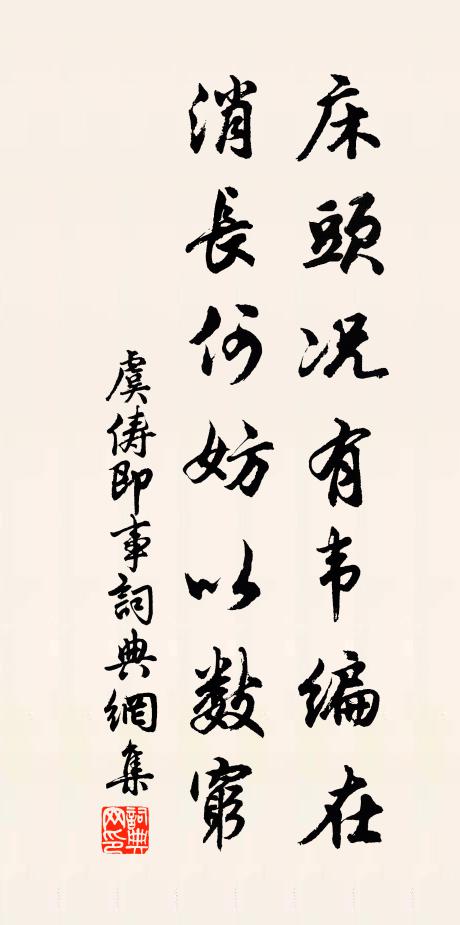 床頭況有韦編在
消長何妨以数窮
虞儔即事詞典網集
詞典网印